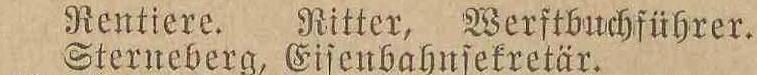 Rentiere. Ritter, Werftbuchführer.
Sterneberg, Eisenbahnsekretär.